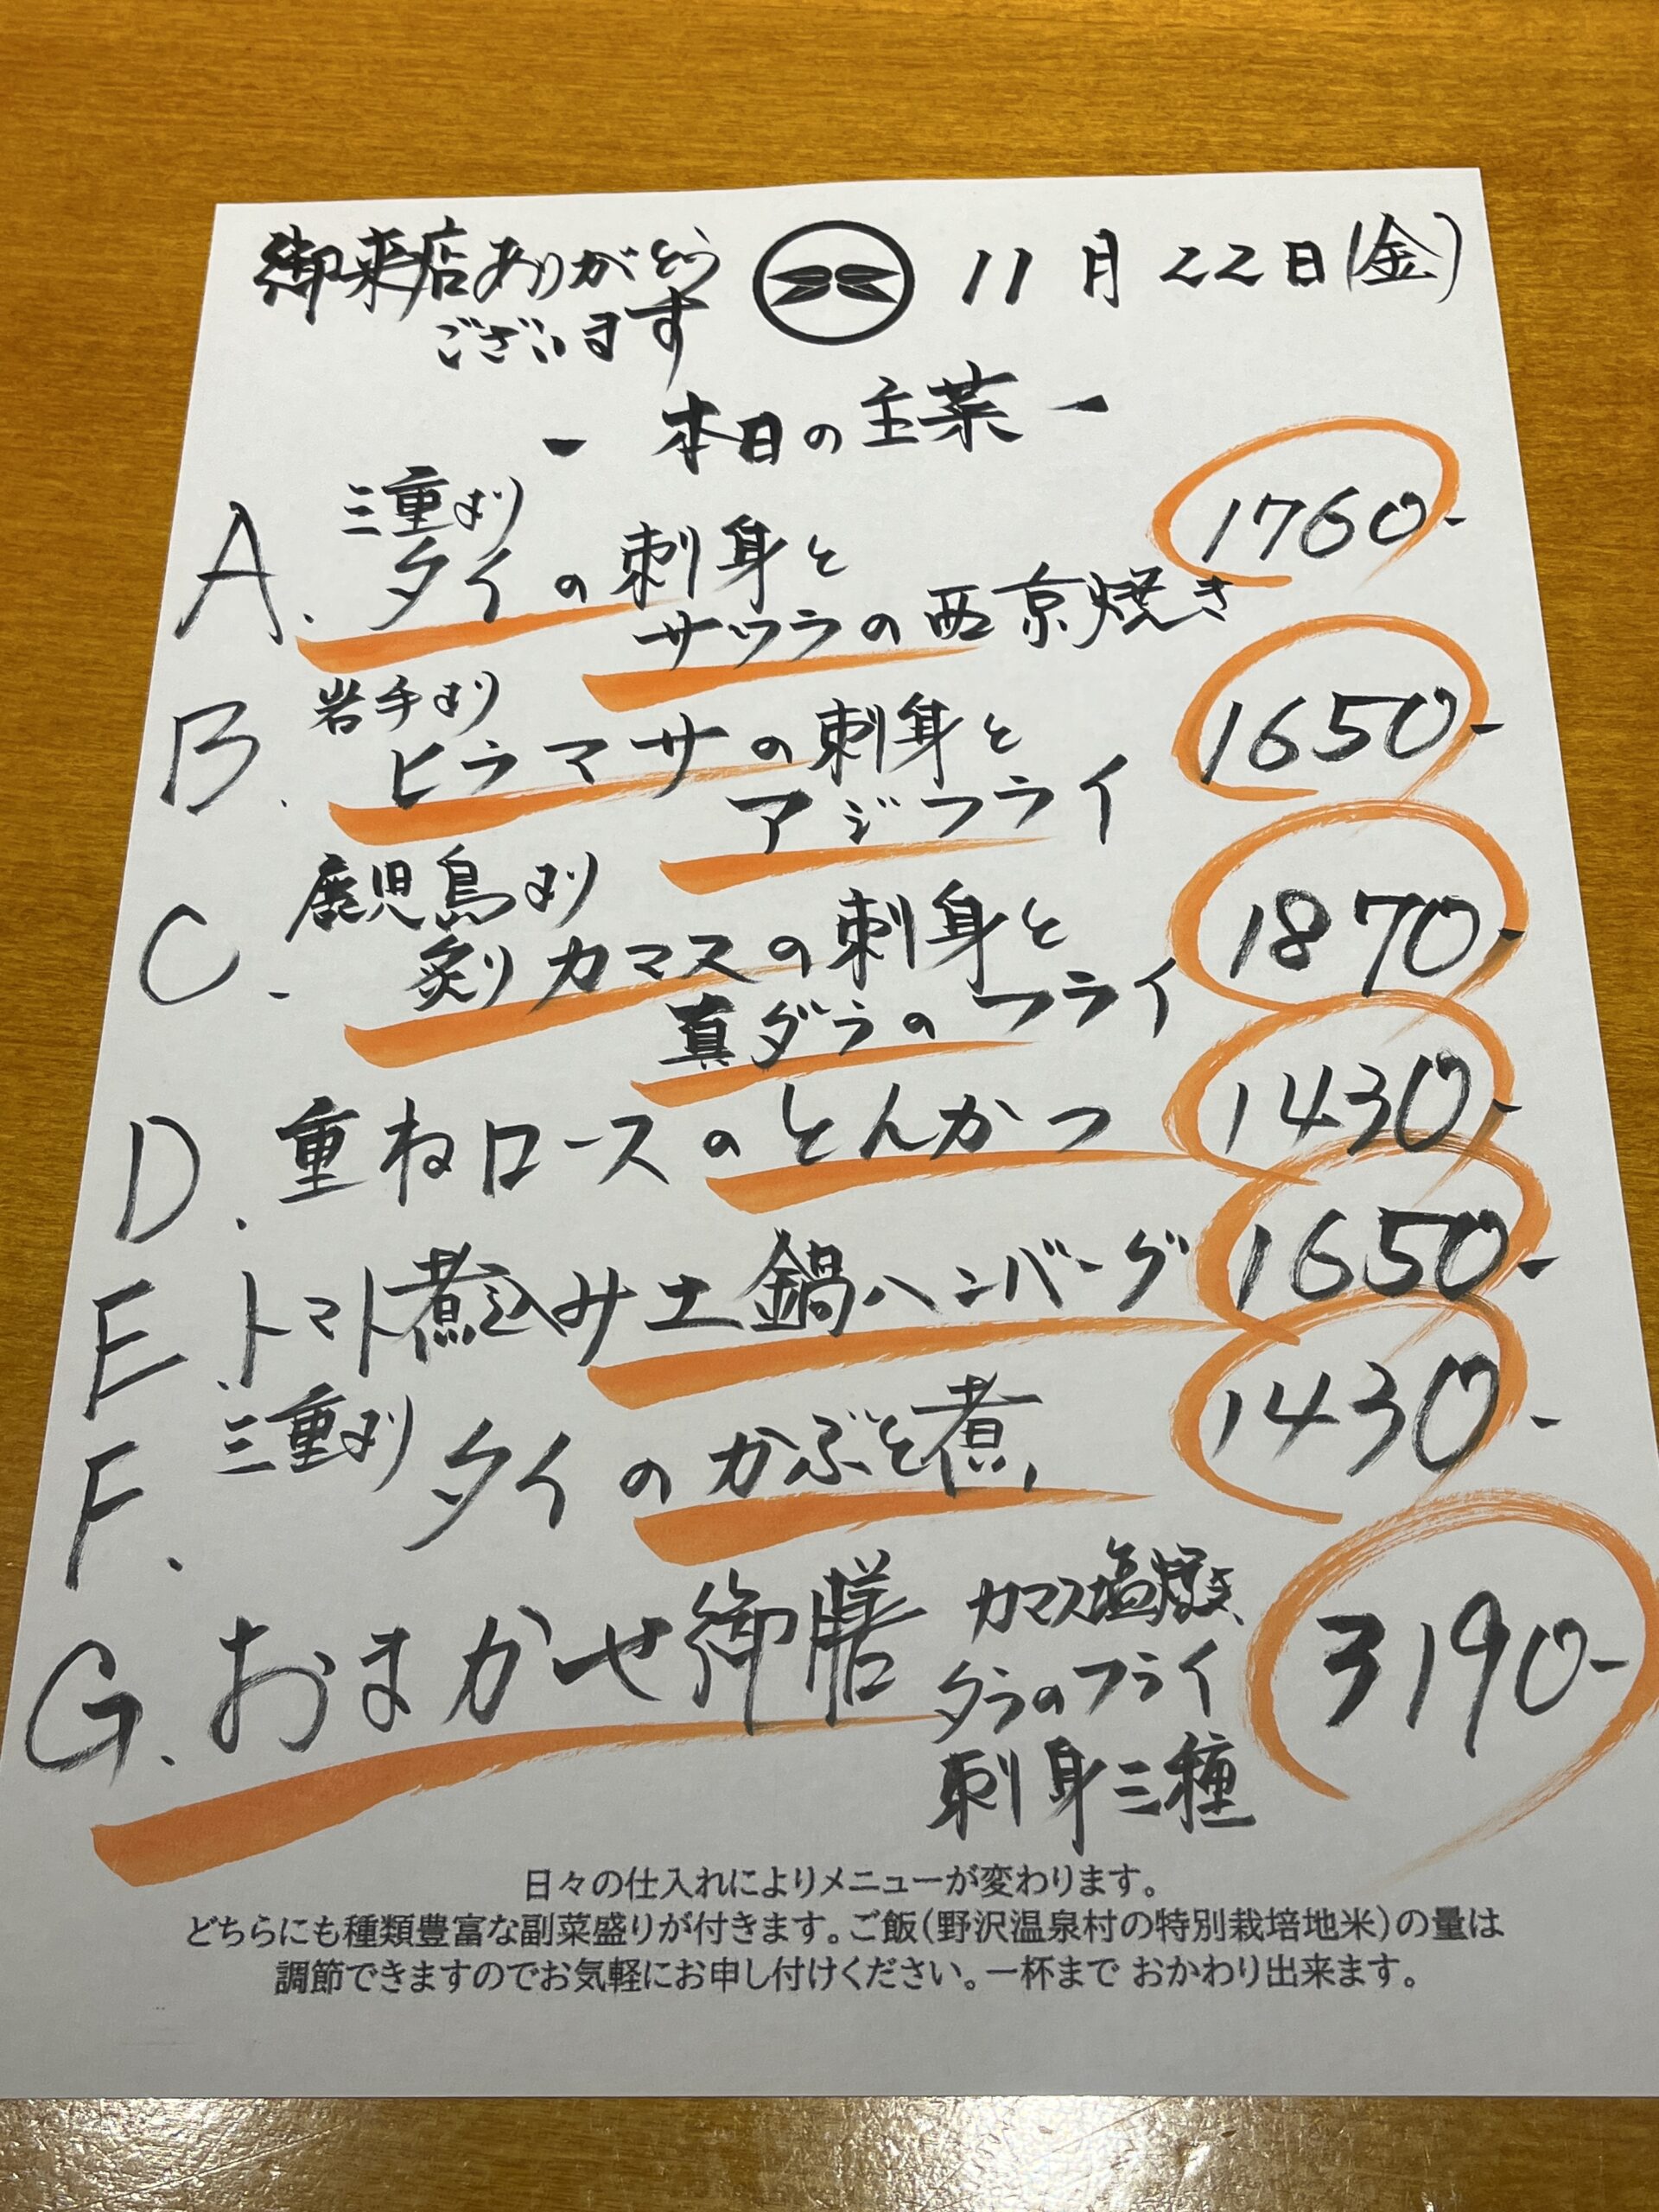 御来店ありがとう
ございます
11月22日(金)
- 本日の主菜 -
A. 三重より
タイの刺身と
サワラの西京焼き
1760-
B. 岩手より
ヒラマサの刺身と
アジフライ
1650-
C. 鹿児島より
炙りカマスの刺身と
真ダラのフライ
1870-
D. 重ねロースのとんかつ
1430-
E. トマト煮込み土鍋ハンバーグ
1650-
F. 三重より
タイのかぶと煮
1430-
G. おまかせ御膳
カマス塩焼き
タラのフライ
刺身三種
3190-
日々の仕入れによりメニューが変わります。
どちらにも種類豊富な副菜盛りが付きます。ご飯(野沢温泉村の特別栽培地米)の量は
調節できますのでお気軽にお申し付けください。一杯まで おかわり出来ます。